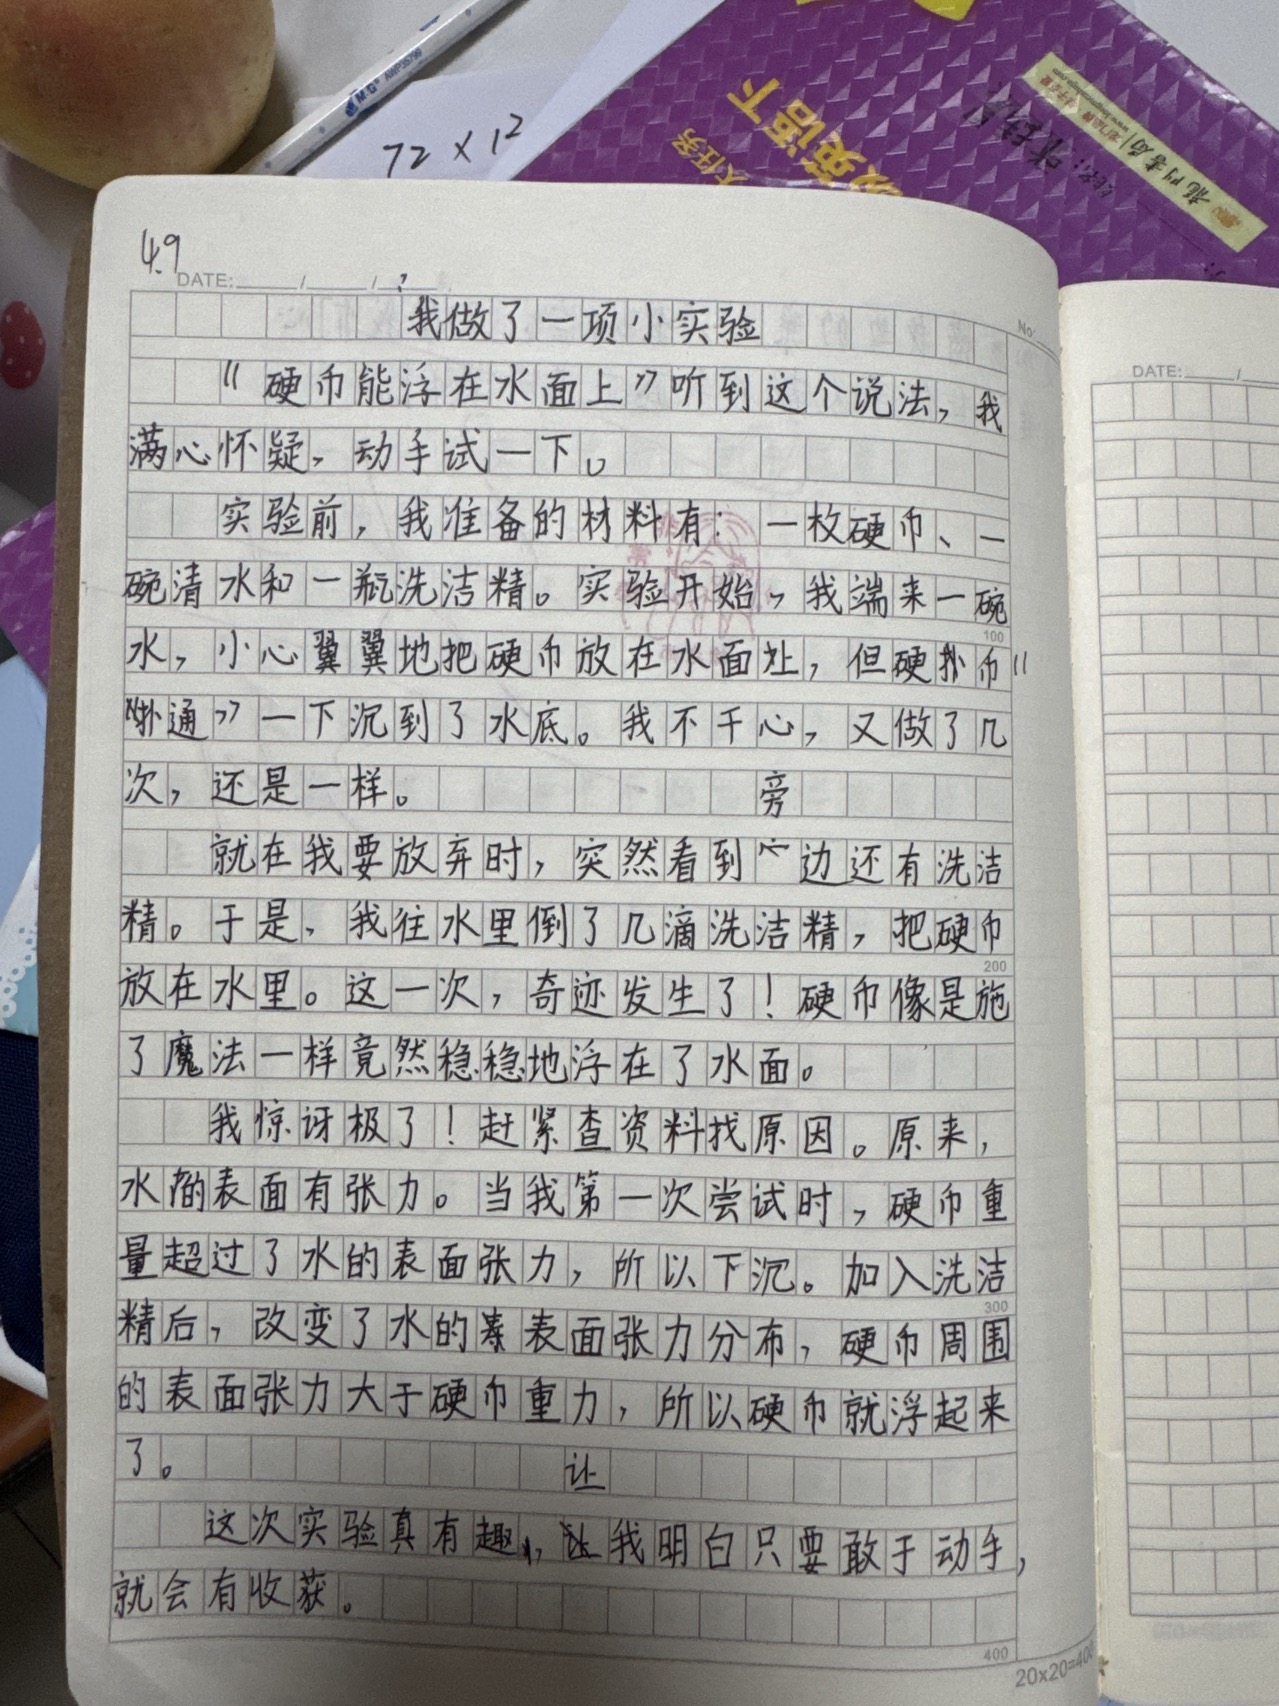 M&G AWP35799
72 × 12
英语下
大任务
龍門书局
4.9
DATE: / / ?
No:
我做了一项小实验
“硬币能浮在水面上”听到这个说法，我
满心怀疑，动手试一下。
实验前，我准备的材料有：一枚硬币、一
碗清水和一瓶洗洁精。实验开始，我端来一碗
100
水，小心翼翼地把硬币放在水面上，但硬币“
“扑通”一下沉到了水底。我不干心，又做了几
次，还是一样。
旁
就在我要放弃时，突然看到边还有洗洁
精。于是，我往水里倒了几滴洗洁精，把硬币
200
放在水里。这一次，奇迹发生了！硬币像是施
了魔法一样竟然稳稳地浮在了水面。
我惊讶极了！赶紧查资料找原因。原来，
水的表面有张力。当我第一次尝试时，硬币重
量超过了水的表面张力，所以下沉。加入洗洁
300
精后，改变了水的表面张力分布，硬币周围
的表面张力大于硬币重力，所以硬币就浮起来
了。
让
这次实验真有趣，让我明白只要敢于动手，
就会有收获。
400
20x20=400
DATE: /